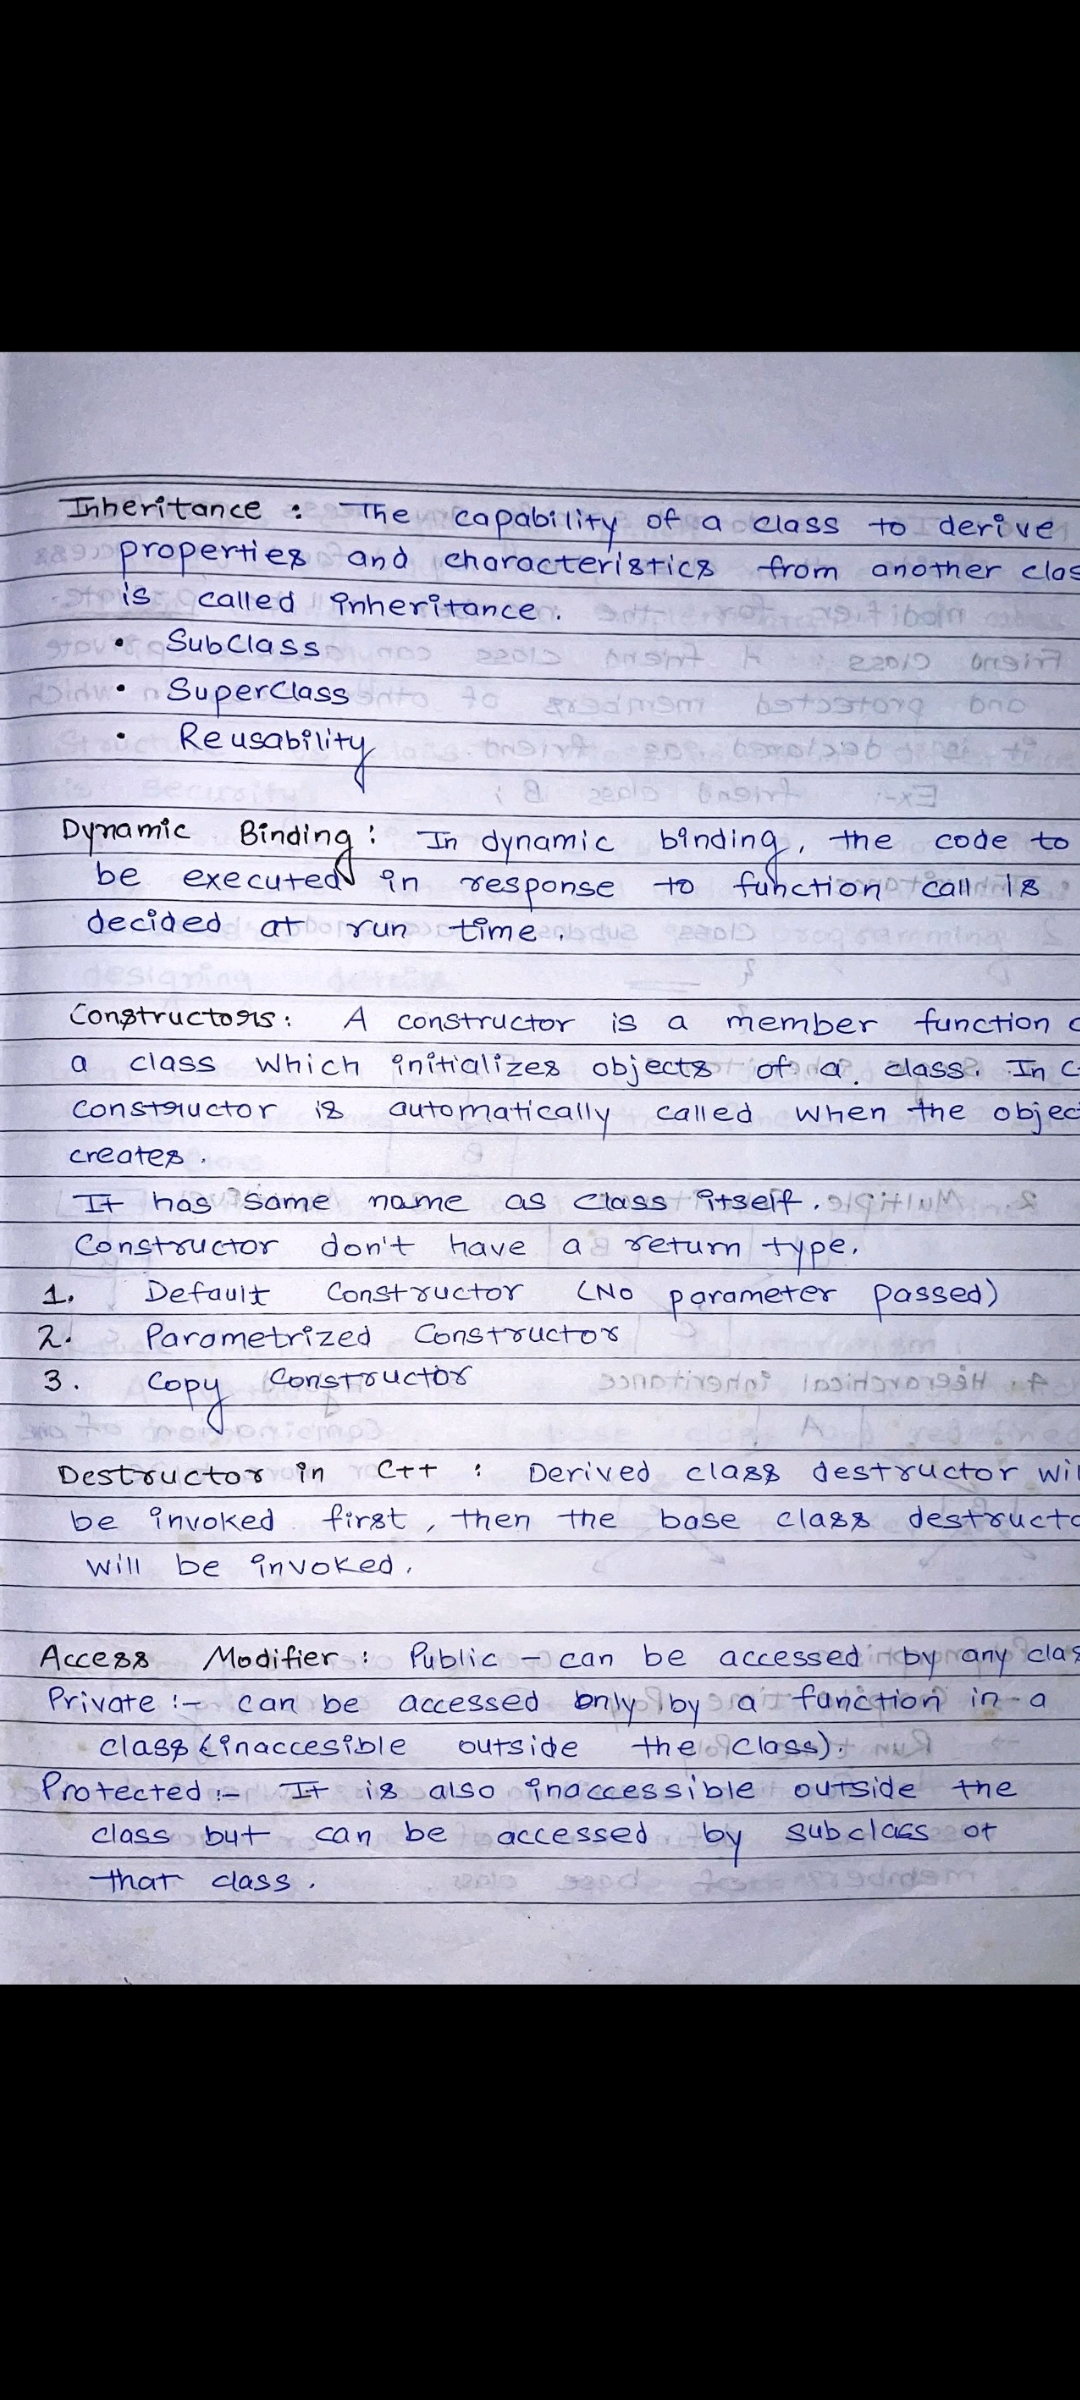 Inheritance : The capability of a class to derive
properties and characteristics from another clas
is called inheritance.
• SubClass
• SuperClass
• Reusability
Dynamic Binding : In dynamic binding, the code to
be executed in response to function call is
decided at run time.
Constructors : A constructor is a member function
a class which initializes objects of a class. In C
constructor is automatically called when the objec
creates.
It has same name as class itself.
Constructor don't have a return type.
1. Default Constructor (No parameter passed)
2. Parametrized Constructor
3. Copy Constructor
Destructor in C++ : Derived class destructor wil
be invoked first, then the base class destructo
will be invoked.
Access Modifier : Public - can be accessed by any clas
Private :- can be accessed only by a function in a
class (inaccesible outside the class).
Protected :- It is also inaccessible outside the
class but can be accessed by subclass of
that class.